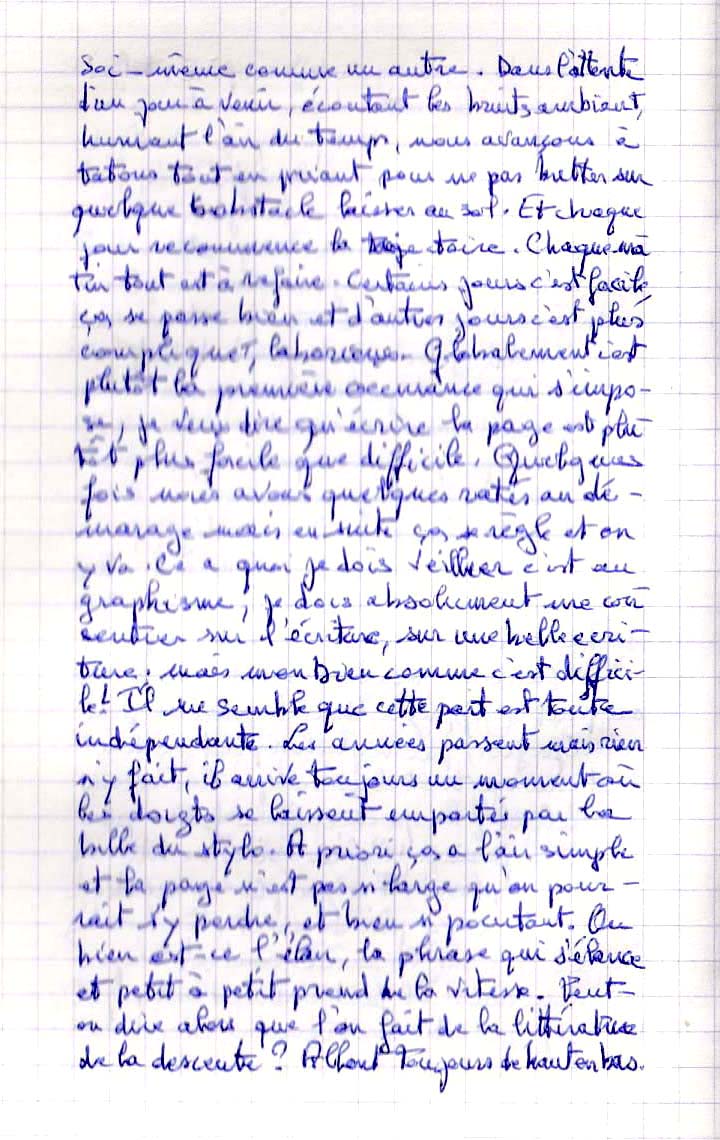 Soi-même comme un autre. Dans l'attente
d'un jour à venir, écoutant les bruits ambiant,
humant l'air du temps, nous avançons à
tatons tout en priant pour ne pas butter sur
quelque obstacle laisser au sol. Et chaque
jour recommence la trajectoire. Chaque ma
tin tout est à refaire. Certains jours c'est facile,
ça se passe bien et d'autres jours c'est plus
compliquer, laborieux. Globalement c'est
plutôt la première occurance qui s'impo-
se, je veux dire qu'écrire la page est plu
tôt plus facile que difficile. Quelques
fois nous avons quelques ratés au dé-
marage mais ensuite ça se règle et on
y va. Ce a quoi je dois veiller c'est au
graphisme, je dois absolument me con
centrer sur l'écriture, sur une belle écri-
ture. mais mon Dieu comme c'est diffici-
le! Il me semble que cette part est toute
indépendante. Les années passent mais rien
n'y fait, il arrive toujours un moment où
les doigts se laissent emportés par la
bille du stylo. A priori ça a l'air simple
et la page n'est pas si large qu'on pour-
rait s'y perdre, et bien si pourtant. Ou
bien est-ce l'élan, la phrase qui s'élance
et petit à petit prend de la vitesse. Peut-
on dire alors que l'on fait de la littérature
de la descente? Allant toujours de haut en bas.